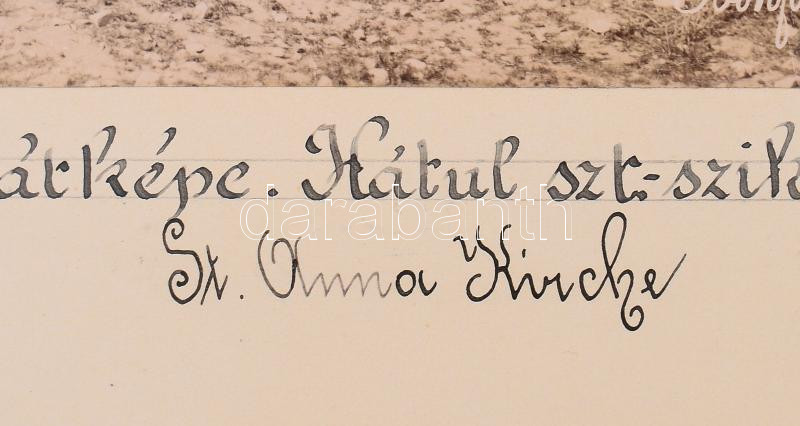 átképe. Hátul szt.-szik
St. Anna Kirche
darabanth